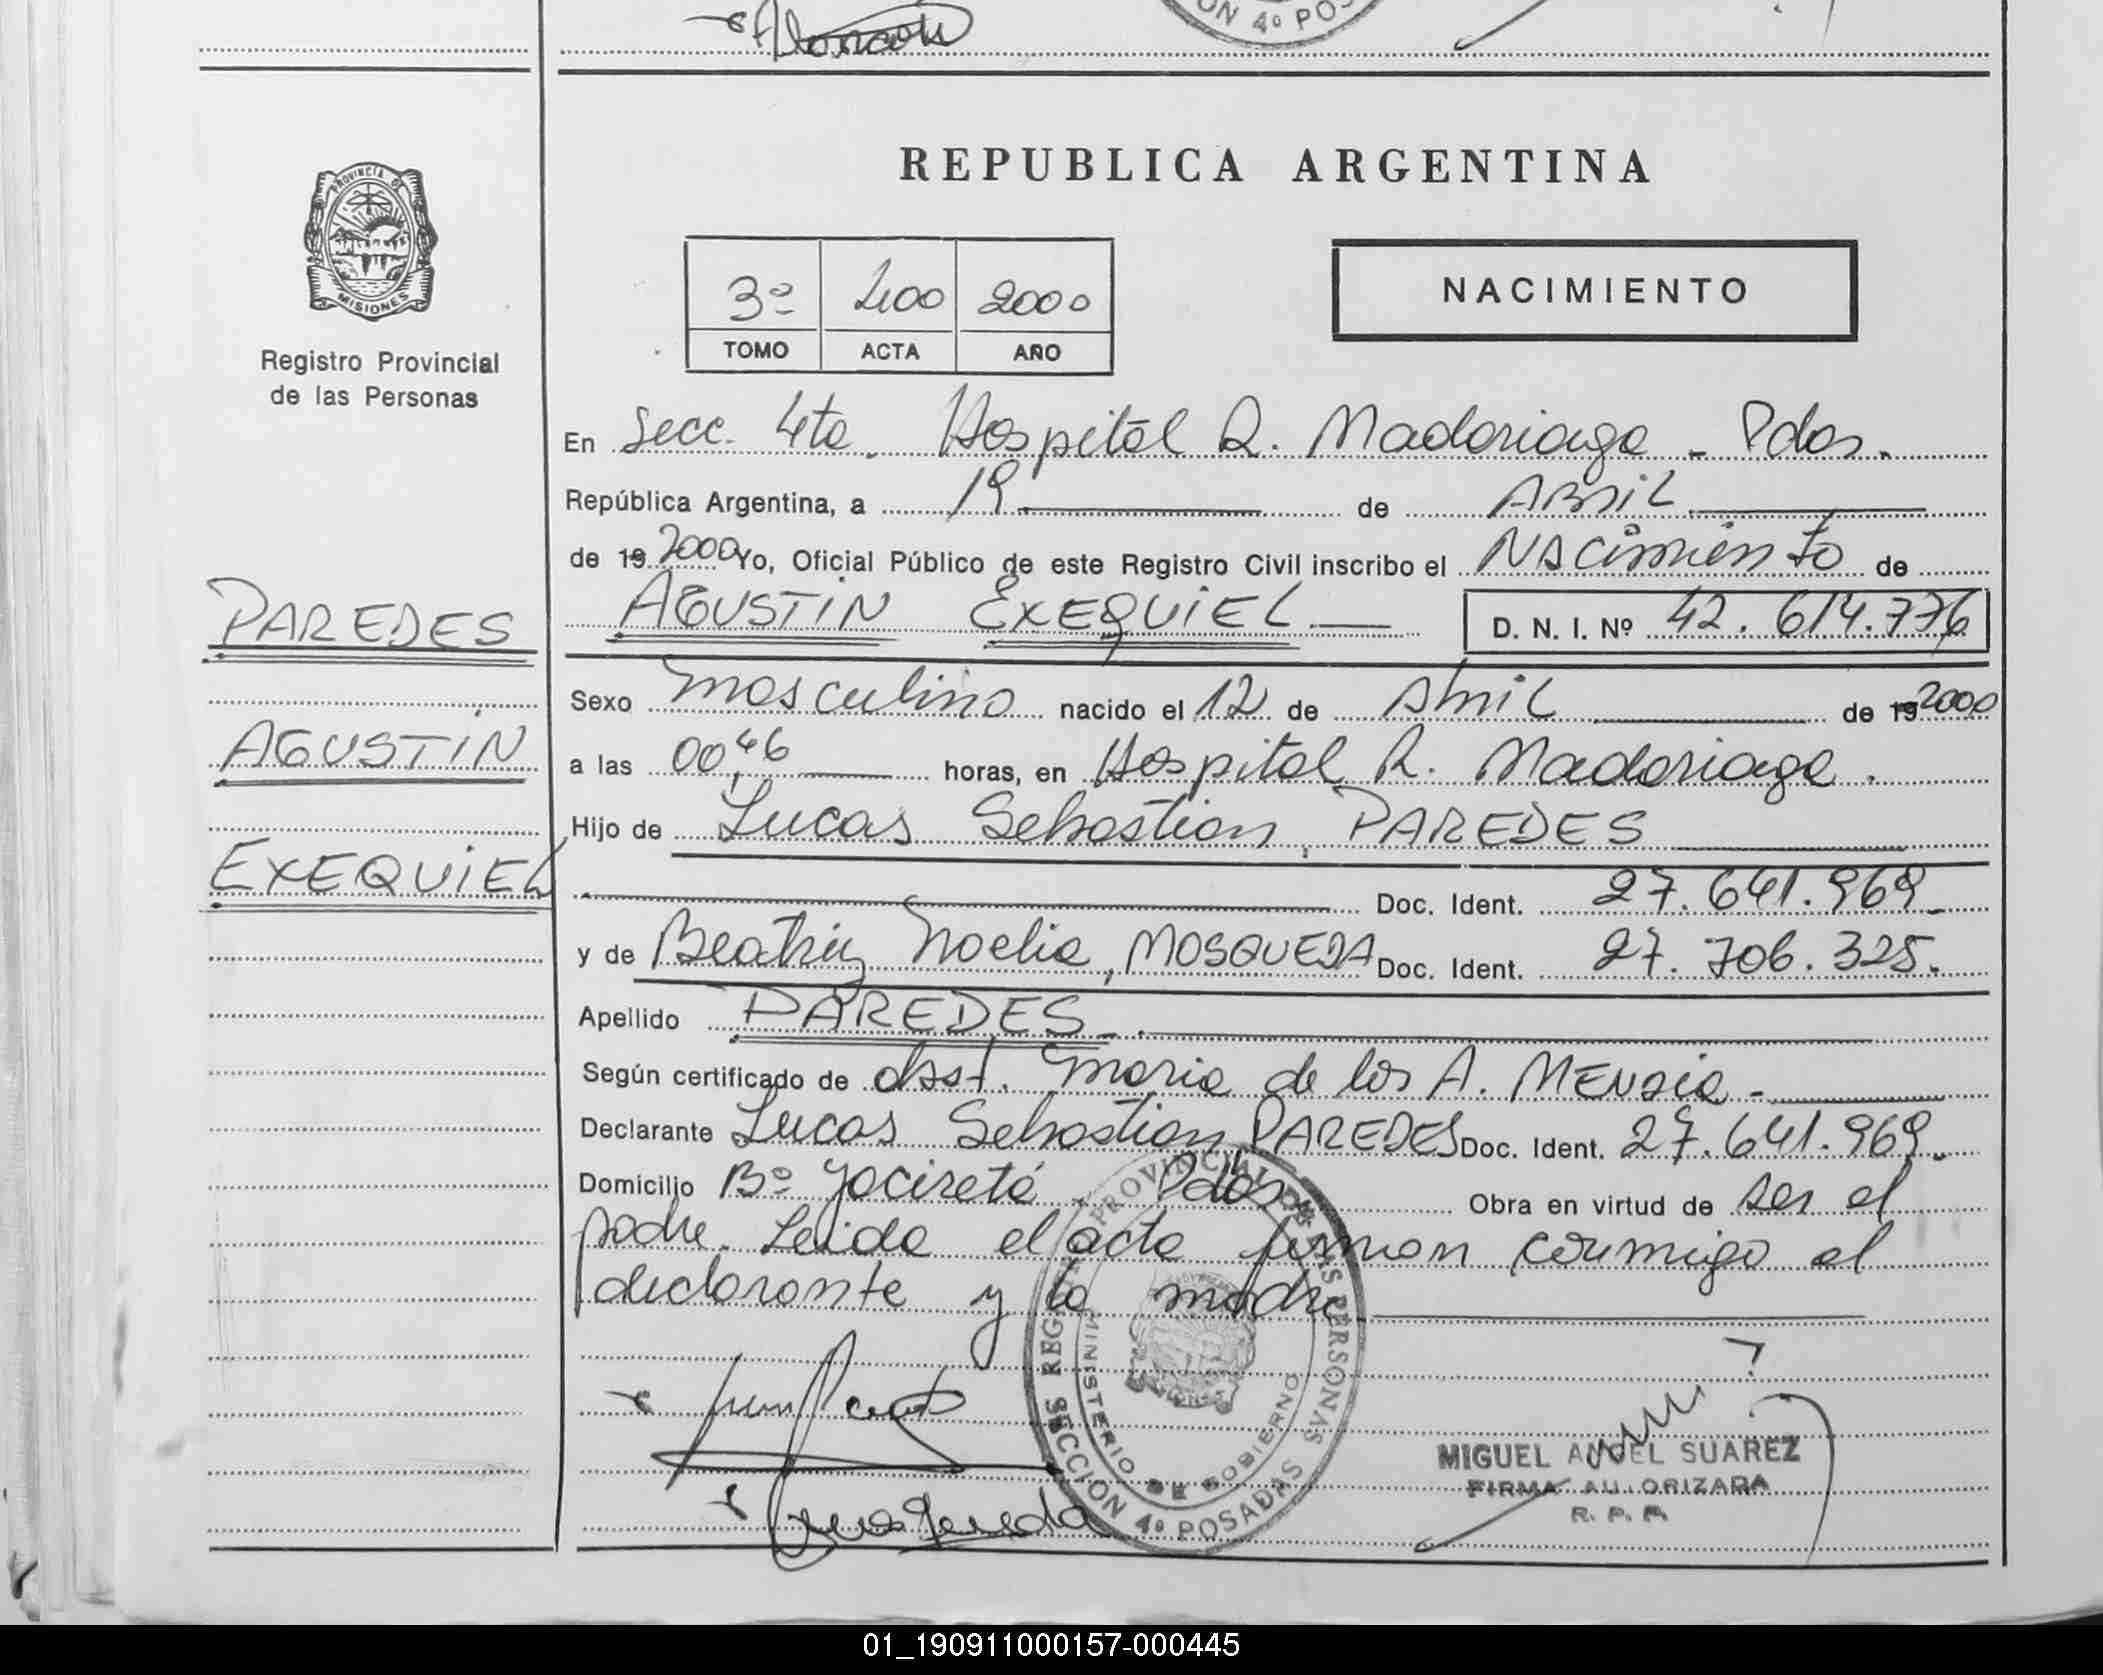 REPUBLICA ARGENTINA
PROVINCIA DE
MISIONES
Registro Provincial
de las Personas
3º 400 2000
TOMO ACTA AÑO
NACIMIENTO
En Secc. 4ta. Hospital R. Madariaga - Pdas.
República Argentina, a 19 de Abril
de 19 2000 Yo, Oficial Público de este Registro Civil inscribo el Nacimiento de
AGUSTIN EXEQUIEL D. N. I. Nº 42.614.776
PAREDES
AGUSTIN
EXEQUIEL
Sexo masculino nacido el 12 de Abril de 19 2000
a las 00,46 horas, en Hospital R. Madariaga.
Hijo de Lucas Sebastian PAREDES
Doc. Ident. 27.641.969
y de Beatriz Noelia, MOSQUEDA Doc. Ident. 27.706.325.
Apellido PAREDES
Según certificado de obst. Maria de los A. MENDIE
Declarante Lucas Sebastian PAREDES Doc. Ident. 27.641.969.
Domicilio Bº Yacireta - Pdas. Obra en virtud de ser el
padre. Leida el acta firman conmigo el
declarante y la madre
REGISTRO PROVINCIAL DE LAS PERSONAS
MINISTERIO DE GOBIERNO
SECCION 4º POSADAS
MIGUEL ANGEL SUAREZ
FIRMA AUTORIZADA
R. P. P.
01_190911000157-000445